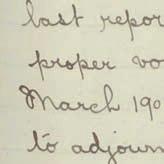 last repor
proper vo
March 190
to adjourn